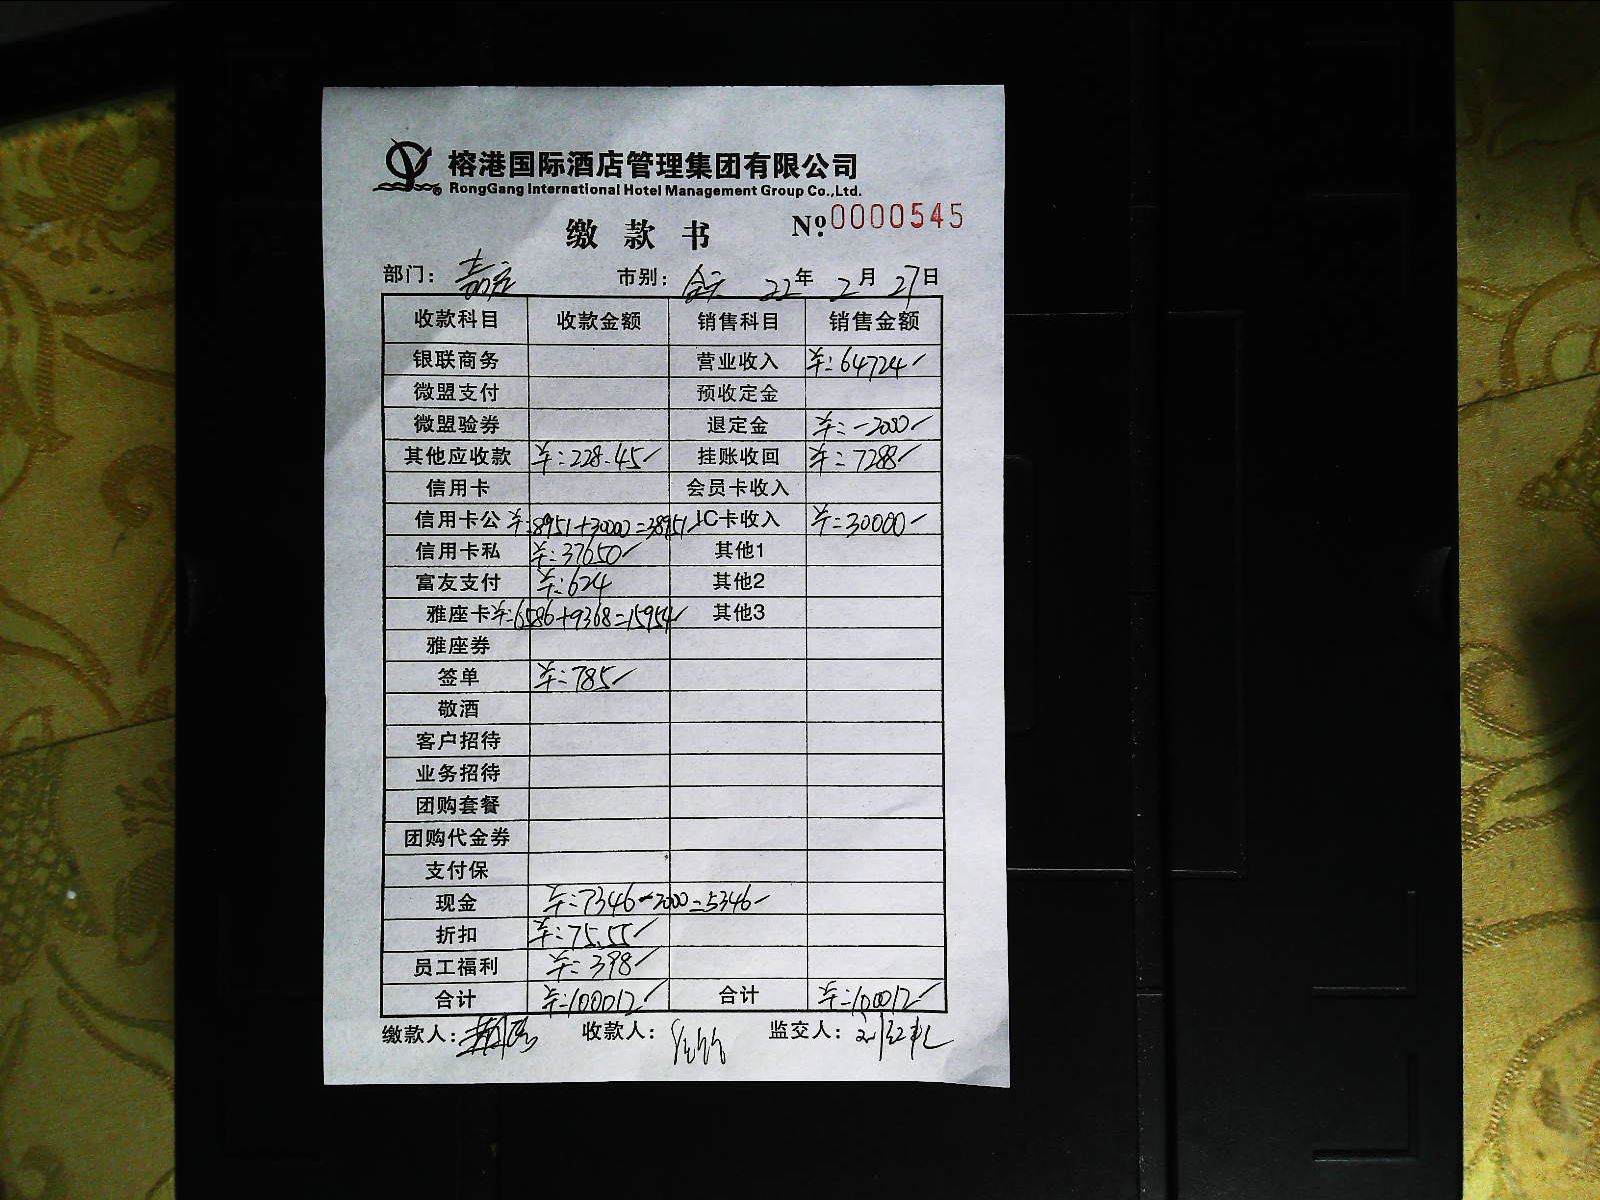 榕港国际酒店管理集团有限公司
RongGang International Hotel Management Group Co.,Ltd.
缴款书 Nº 0000545
部门：嘉定 市别：全天 22年 2月 27日
收款科目 收款金额 销售科目 销售金额
银联商务 营业收入 ¥:64724
微盟支付 预收定金
微盟验券 退定金 ¥:-2000
其他应收款 ¥:228.45 挂账收回 ¥:7288
信用卡 会员卡收入
信用卡公 ¥:8951+30000=38951 IC卡收入 ¥:30000
信用卡私 ¥:37650 其他1
富友支付 ¥:624 其他2
雅座卡 ¥:6586+9368=15954 其他3
雅座券
签单 ¥:785
敬酒
客户招待
业务招待
团购套餐
团购代金券
支付保
现金 ¥:7346-2000=5346
折扣 ¥:75.55
员工福利 ¥:398
合计 ¥:100012 合计 ¥:100012
缴款人： 收款人： 监交人：刘红礼